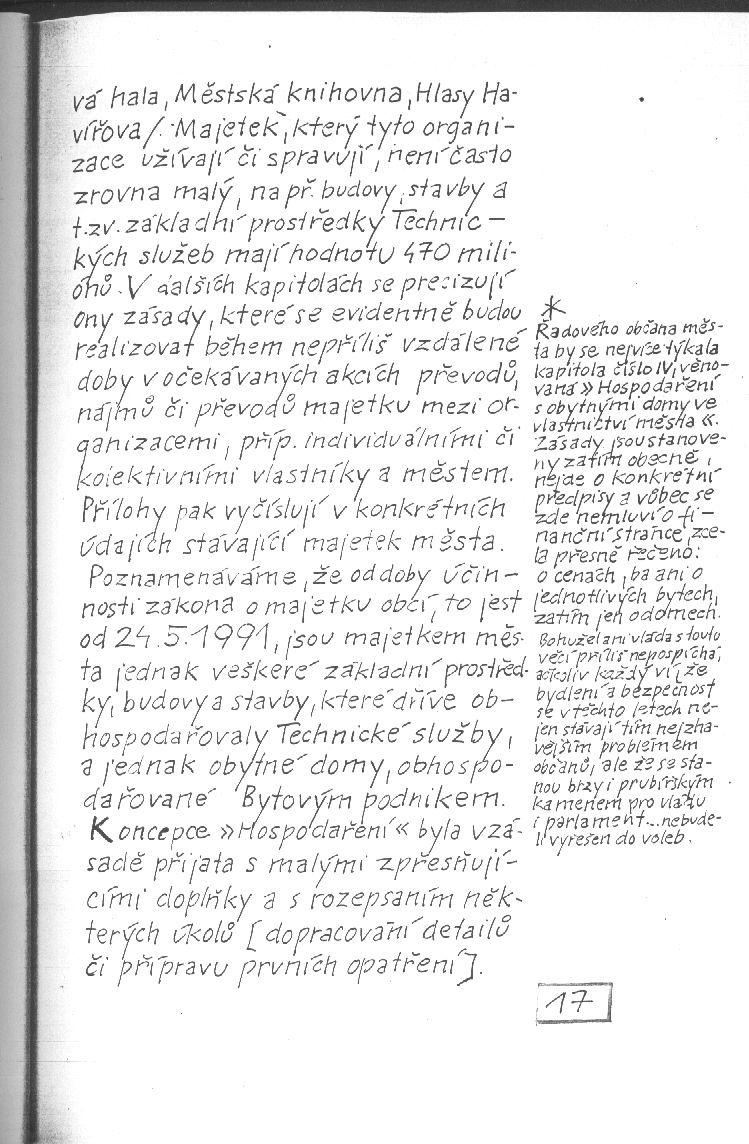 vá hala, Městská knihovna, Hlasy Ha-
vířova/. Majetek, který tyto organi-
zace užívají či spravují, není často
zrovna malý, např. budovy, stavby a
t.zv. základní prostředky Technic-
kých služeb mají hodnotu 470 mili-
ónů. V dalších kapitolách se precizují
ony zásady, které se evidentně budou
realizovat během nepříliš vzdálené
doby v očekávaných akcích převodů,
nájmů či převodů majetku mezi or-
ganizacemi, příp. individuálními či
kolektivními vlastníky a městem.
Přílohy pak vyčíslují v konkrétních
údajích stávající majetek města.
Poznamenáváme, že od doby účin-
nosti zákona o majetku obcí, to jest
od 24.5.1991, jsou majetkem měs-
ta jednak veškeré základní prostřed-
ky, budovy a stavby, které dříve ob-
hospodařovaly Technické služby,
a jednak obytné domy, obhospo-
dařované Bytovým podnikem.
Koncepce »Hospodaření« byla v zá-
sadě přijata s malými zpřesňují-
cími doplňky a s rozepsaním něk-
terých úkolů [dopracování detailů
či přípravu prvních opatření].
*
Řadového občana měs-
ta by se nejvíce týkala
kapitola číslo IV, věno-
vaná »Hospodaření
s obytnými domy ve
vlastnictví města«.
Zásady jsou stanove-
ny zatím obecně,
nejde o konkrétní
předpisy a vůbec se
zde nemluví o fi-
nanční stránce, zce-
la přesně řečeno:
o cenách, ba ani o
jednotlivých bytech,
zatím jen o domech.
Bohužel ani vláda s touto
věcí příliš nepospíchá,
ačkoliv každý ví, že
bydlení a bezpečnost
se v těchto letech ne-
jen stávají tím nejzha-
vějším problémem
občanů, ale že se sta-
nou brzy i prubířským
kamenem pro vládu
i parlament... nebude-
li vyřešen do voleb.
17